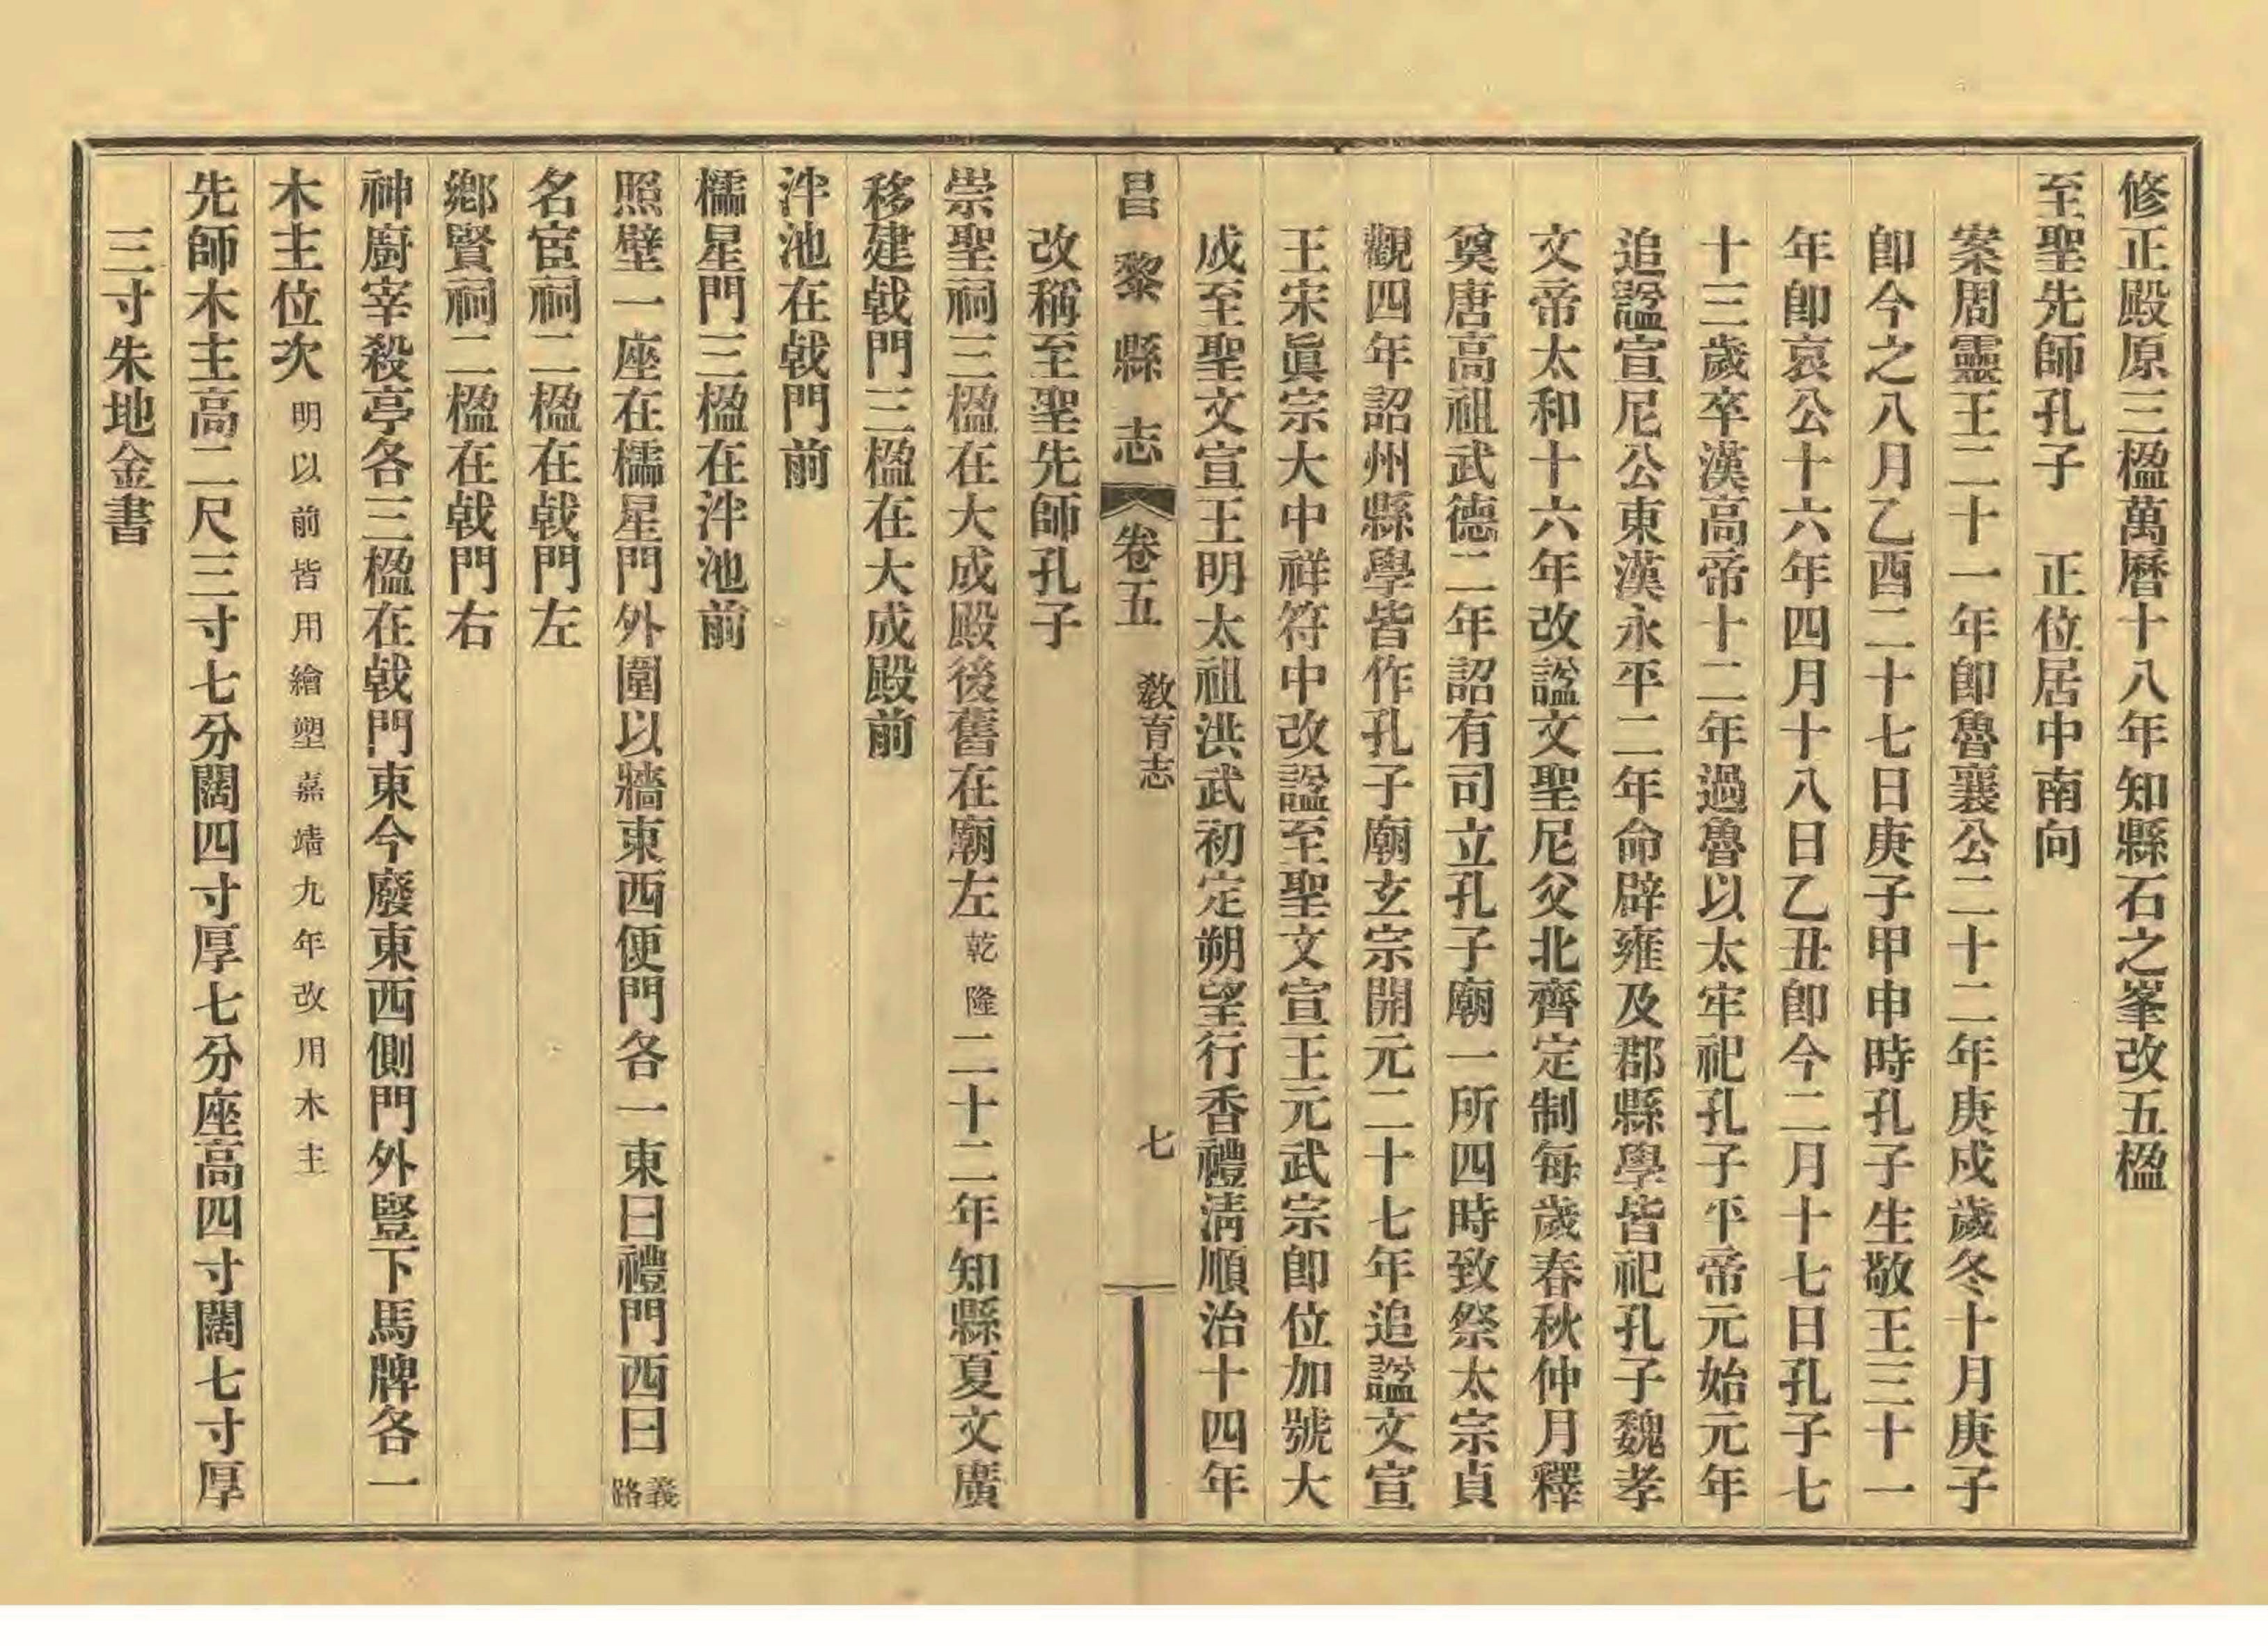 修正殿原三楹萬曆十八年知縣石之峯改五楹
至聖先師孔子　正位居中南向
案周靈王二十一年卽魯襄公二十二年庚戌歲冬十月庚子
卽今之八月乙酉二十七日庚子甲申時孔子生敬王三十一
年卽哀公十六年四月十八日乙丑卽今二月十七日孔子七
十三歲卒漢高帝十二年過魯以太牢祀孔子平帝元始元年
追謚宣尼公東漢永平二年命辟雍及郡縣學皆祀孔子魏孝
文帝太和十六年改謚文聖尼父北齊定制每歲春秋仲月釋
奠唐高祖武德二年詔有司立孔子廟一所四時致祭太宗貞
觀四年詔州縣學皆作孔子廟玄宗開元二十七年追謚文宣
王宋眞宗大中祥符中改謚至聖文宣王元武宗卽位加號大
成至聖文宣王明太祖洪武初定朔望行香禮淸順治十四年
昌黎縣志　卷五　教育志　七
改稱至聖先師孔子
崇聖祠三楹在大成殿後舊在廟左乾隆二十二年知縣夏文廣
移建戟門三楹在大成殿前
泮池在戟門前
櫺星門三楹在泮池前
照壁一座在櫺星門外圍以牆東西便門各一東曰禮門西曰義路
名宦祠二楹在戟門左
鄉賢祠二楹在戟門右
神廚宰殺亭各三楹在戟門東今廢東西側門外豎下馬牌各一
木主位次明以前皆用繪塑嘉靖九年改用木主
先師木主高二尺三寸七分闊四寸厚七分座高四寸闊七寸厚
三寸朱地金書